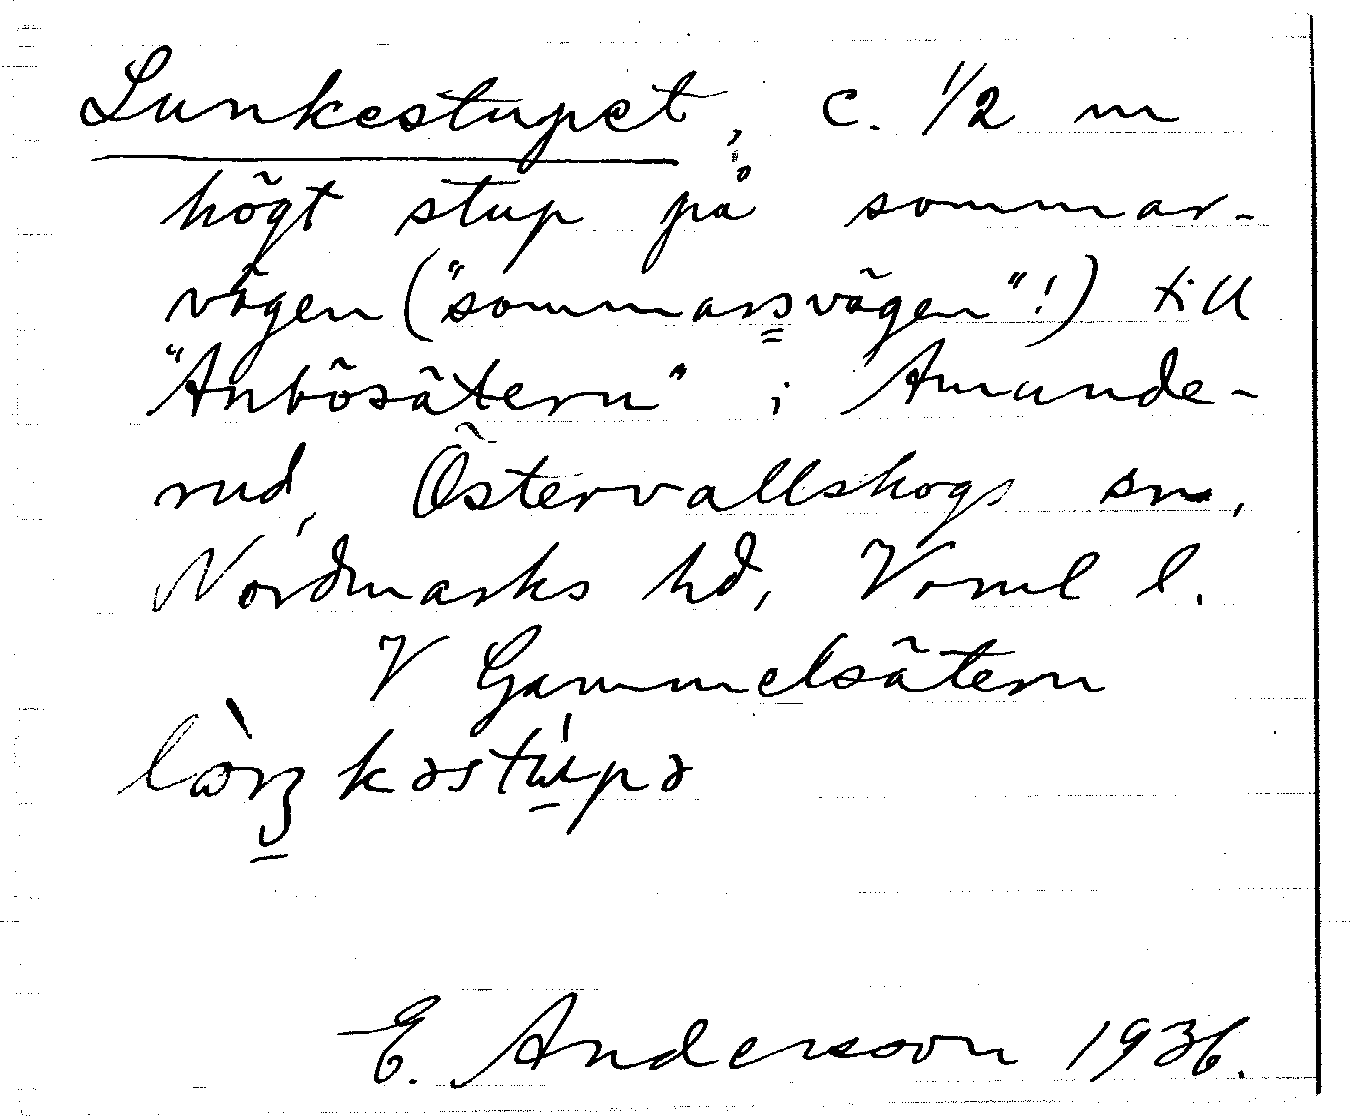 Lunkestupet, c. 1/2 m
högt stup på sommar-
vägen ("sommarsvägen"!) till
"Anbösätern" i Amunde-
rud, Östervallskogs sn,
Nordmarks hd, Värml l.
V Gammelsätern
E. Andersson 1936.